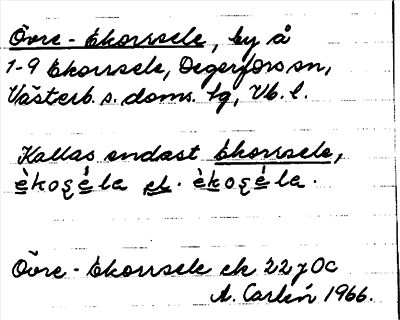 Övre-Ekorrsele, by å
1-9 Ekorrsele, Degerfors sn,
Västerb. s. doms. lg, Vb. l.
Kallas endast Ekorrsele,
èkoʂéla el. èkoʂéla.
Övre-Ekorrsele ek 22 7 0c
A. Carlén 1966.